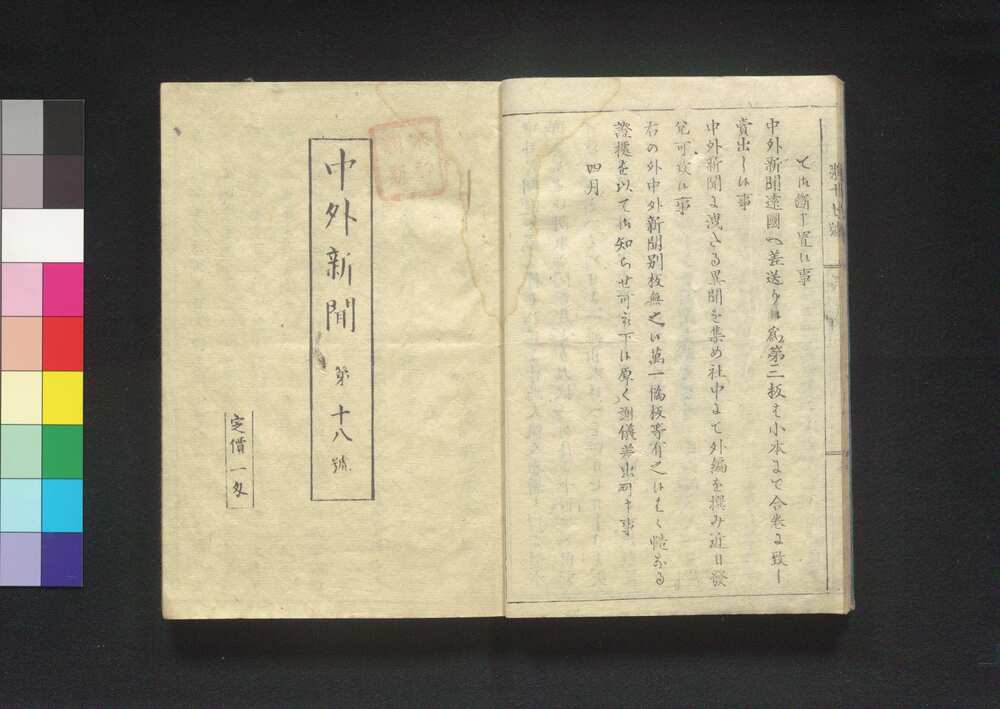 第十七号
て御断申置候事
中外新聞遠國へ差送り候為第三板も小本にて合巻に致し
賣出し候事
中外新聞に洩たる異聞を集め社中にて外編を撰み近日發
兌可致候事
右の外中外新聞別板無之候萬一偽板等有之候はゞ慥なる
證據を以て御知らせ可被下候厚く謝儀差出可申事
四月
中外新聞
第十八號
定價一匁